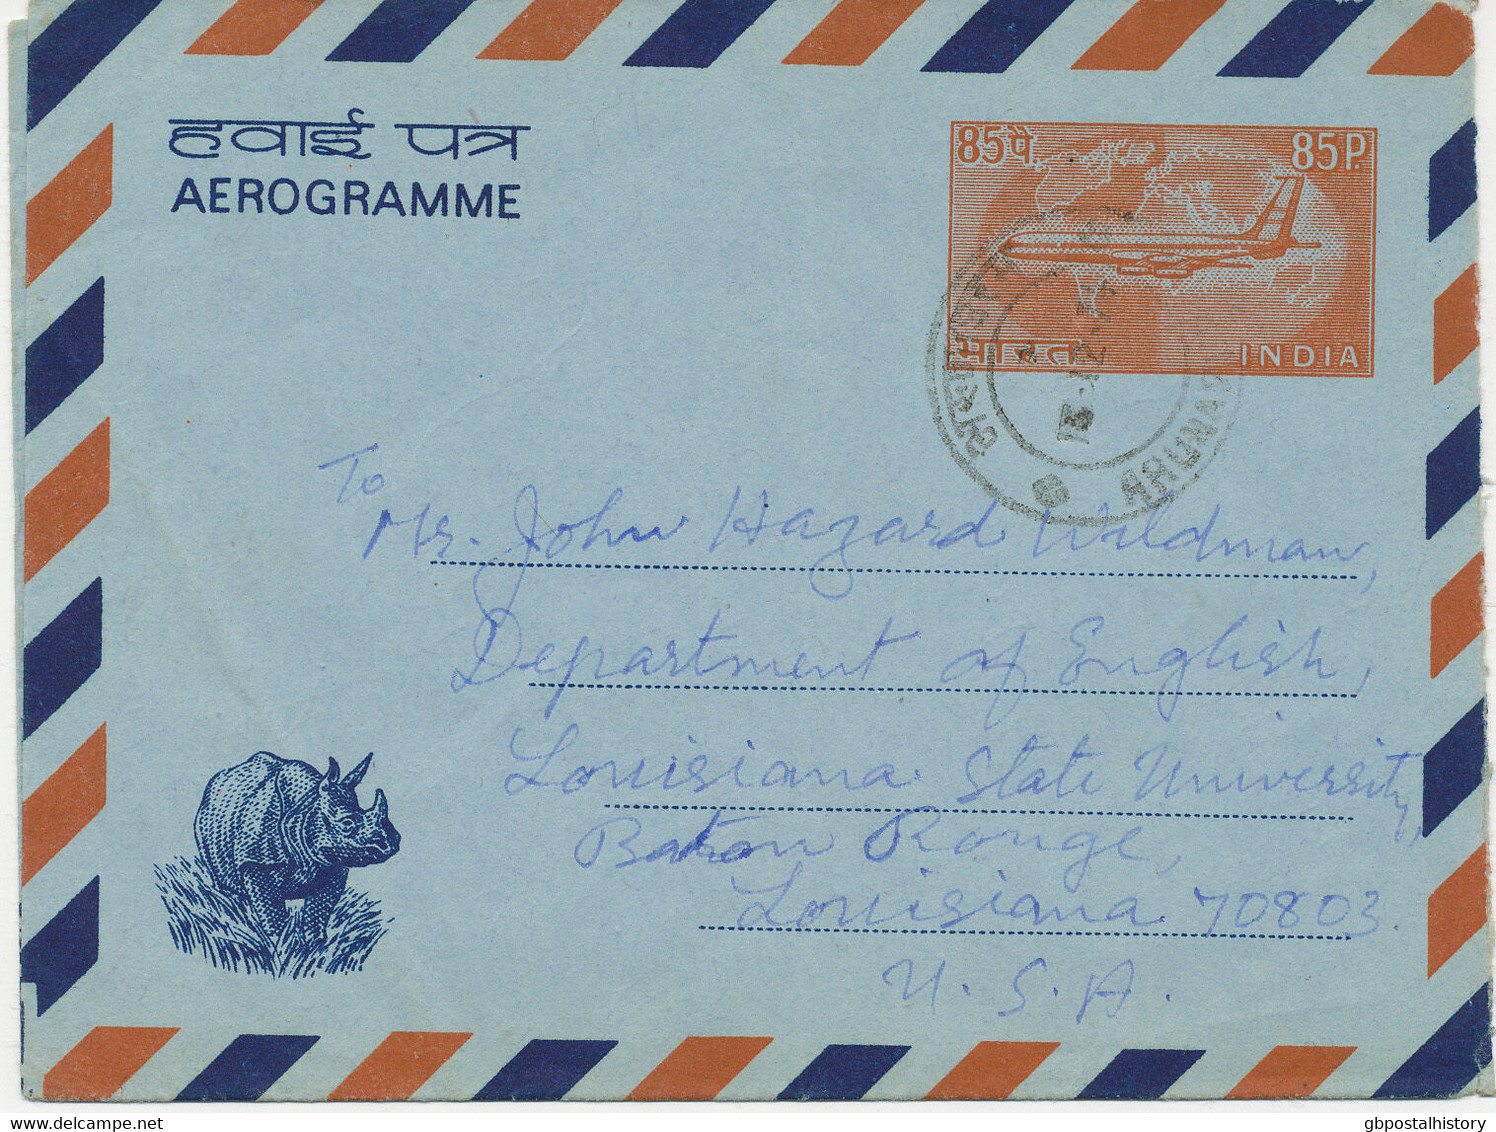 हवाई पत्र
AEROGRAMME
85पै 85P.
भारत INDIA
To
Mr. John Hazard Wildman,
Department of English,
Louisiana State University,
Baton Rouge,
Louisiana 70803.
U.S.A.
www.delcampe.net
gbpostalhistory